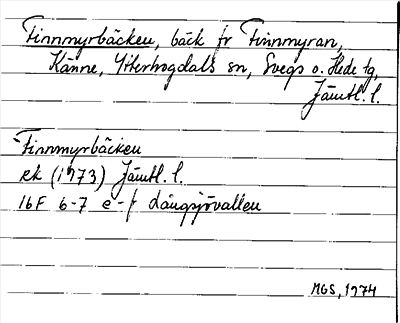 Finnmyrbäcken, bäck fr Finnmyran,
Känne, Ytterhogdals sn, Svegs o. Hede tg,
Jämtl. l.
Finnmyrbäcken
ek (1973) Jämtl. l.
16F 6-7 e-f Långsjövallen
MGS, 1974